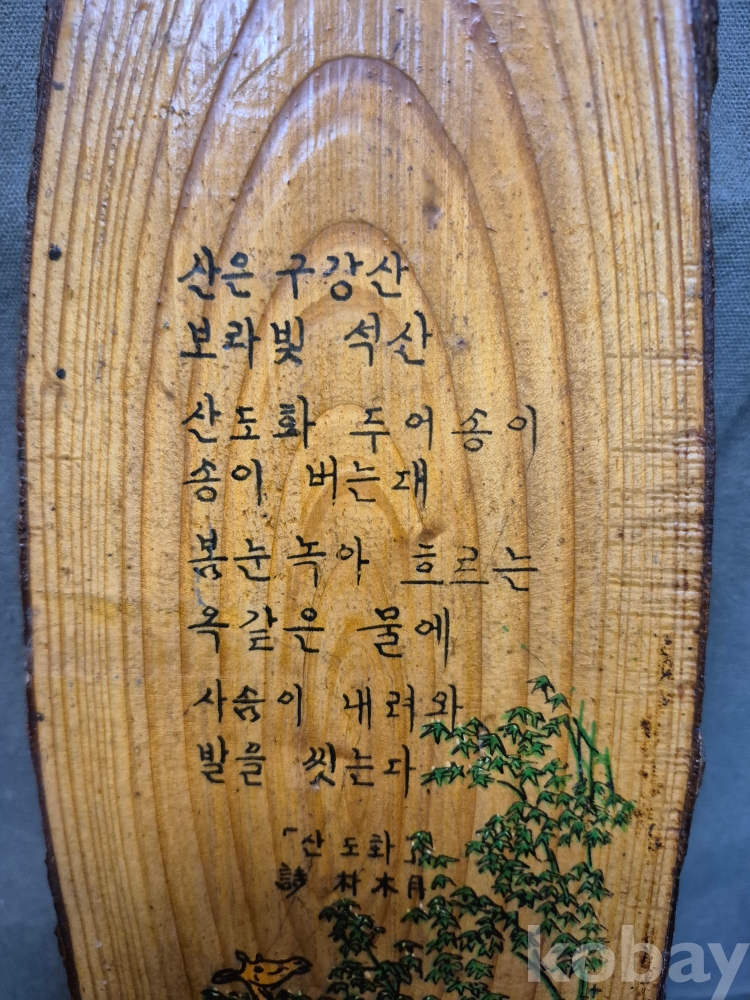 산은 구강산
보라빛 석산
산도화 두어송이
송이 버는데
봄눈녹아 흐르는
옥같은 물에
사슴이 내려와
발을 씻는다
「산도화」
詩 朴木月
kobay